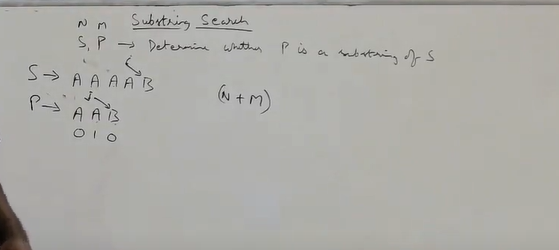 Substring Search
N M
S, P → Determine whether P is a substring of S
i
S → A A A A B
j
P → A A B
0 1 0
(N + M)